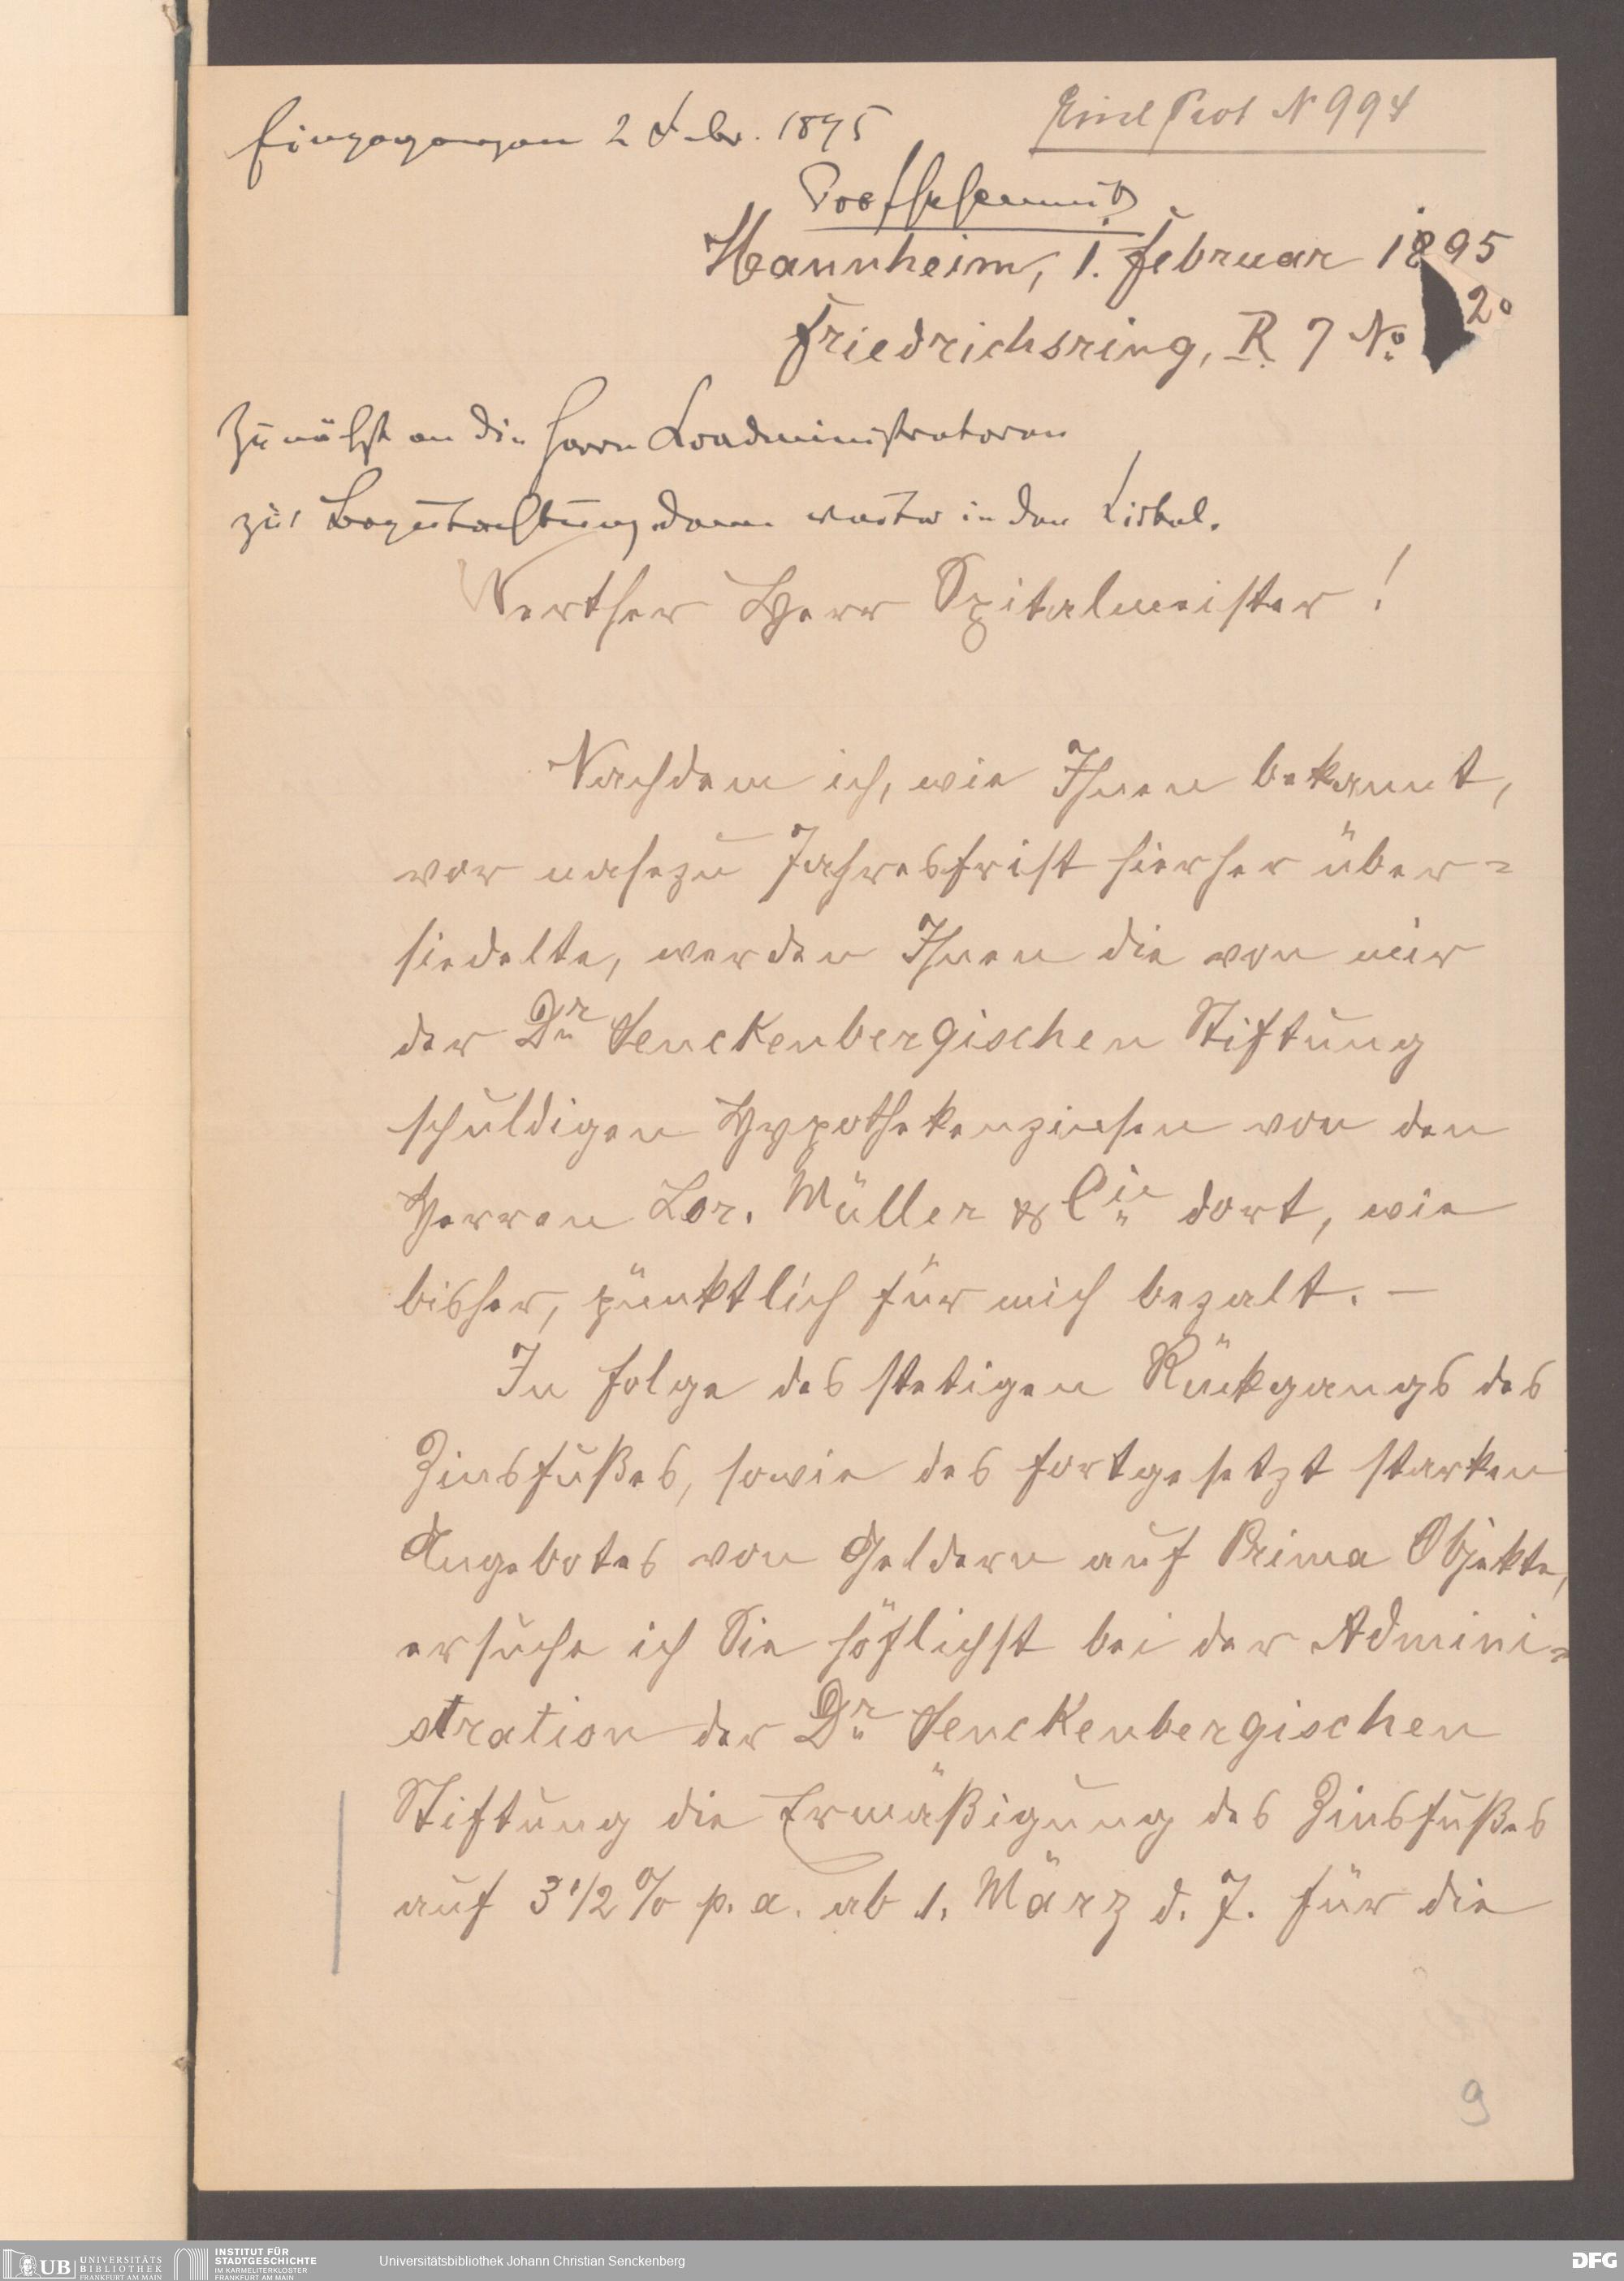 Eingegangen 2 Febr. 1895
Einl Prot N 994
Mannheim, 1. Februar 1895
Friedrichsring, R. 7 No 2
Zunächst an die Herrn Coadministratoren
zur Begutachtung dann weiter in den Zirkel.
Werther Herr Spitalmeister!
Nachdem ich, wie Ihnen bekannt,
vor nahezu Jahresfrist hierher über=
siedelte, werden Ihnen die von mir
der Dr Senckenbergischen Stiftung
schuldigen Hypothekenzinsen von den
Herren Lor. Müller & Cie dort, wie
bisher, pünktlich für mich bezalt. —
In Folge des stetigen Rückgangs des
Zinsfußes, sowie des fortgesetzt starken
Angebotes von Geldern auf Prima Objekte,
ersuche ich Sie höflichst bei der Admini=
stration der Dr Senckenbergischen
Stiftung die Ermäßigung des Zinsfußes
auf 3 1/2 % p. a. ab 1. März d. J. für die
9
UB UNIVERSITÄTS BIBLIOTHEK FRANKFURT AM MAIN
INSTITUT FÜR STADTGESCHICHTE IM KARMELITERKLOSTER FRANKFURT AM MAIN
Universitätsbibliothek Johann Christian Senckenberg
DFG